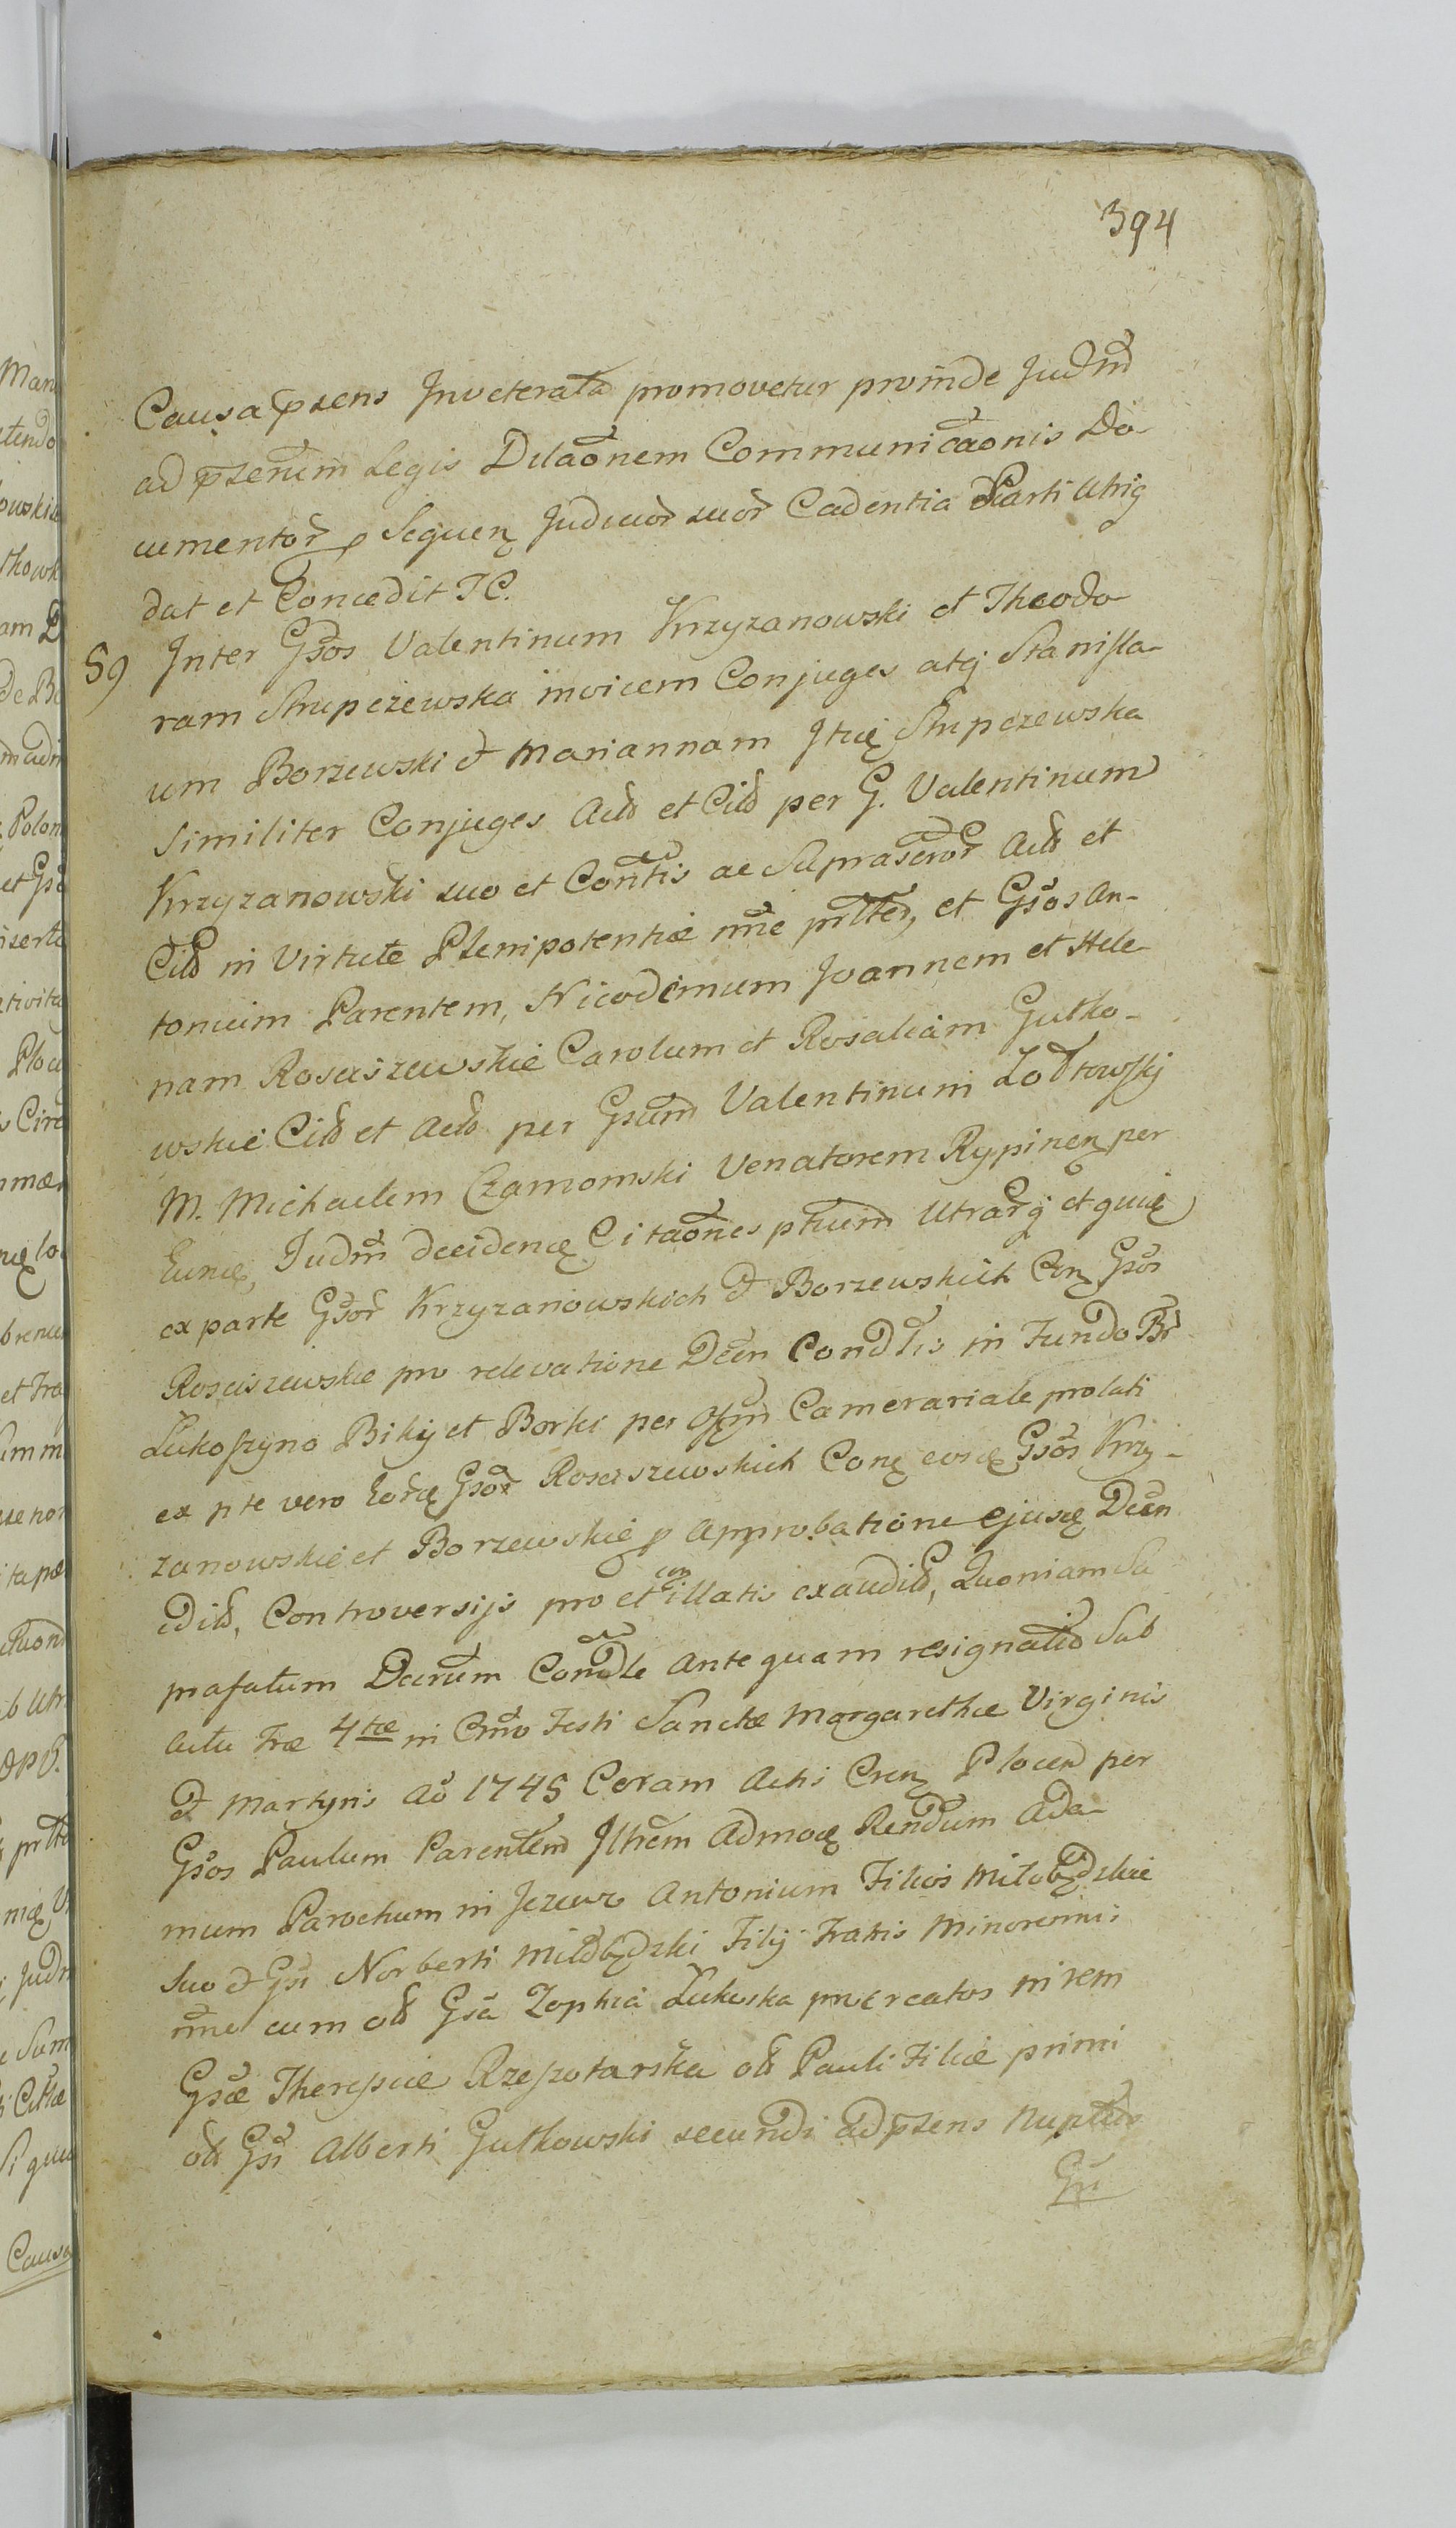 394
Causa pzens Inveterata promovetur proinde Judm̃
ad pzenum Legis Dilaõnem Communicaõnis Do-
cumentor̃ p Sequen Judicior̃ suor̃ Cadentia Parti utriq
dat et Concedit JC.
59 Inter Gsõs Valentinum Krzyzanowski et Theodo-
ram Strupczewska invicem Conjuges atq Stanisla-
um Borzewski et Mariannam Itię Strupczewska
Similiter Conjuges Actõ et Citõ per G. Valentinum
Krzyzanowski suo et Cont̃is ac Suprascror̃ Actõ et
Citõ in Virtute Plenipotentiæ nñe pñtte, et Gsõs An-
tonium Parentem, Nicodemum Joannem et Hele-
nam Rosciszewskie Carolum et Rosaliam Gutko-
wskie Citõ et Actõ per Gsum̃ Valentinum
M. Michaelem Czamomski Venatorem Rypinen per
Eunę, Judm̃ decidenę Citaõnes ptium̃ Utrarq̃ et quię
ex parte Gsõr Krzyzanowskich et Borzewskich Con Gsõs
Rosciszewskie pro relevatione Decr̃i Condlis in Fundo Br̃
Lukoszyno Bikij et Borki per Offm̃ Camerariale prolati
ex pte vero Eorę Gsõr Rosciszewskich Conę eosę Gsõs Krzy-
zanowskie et Borzewskie p approbatione ejusę Decr̃i
editõ, Controversijs pro et con illatis exauditõ, Quoniam Su
prafatum Decrum̃ Cond̃le antequam resignatũ Sub
Actu Fræ 4tæ in Crño Festi Sanctæ Margarethæ Virginis
et Martyris Aõ 1745 Coram Actis Cren Plocen per
Gsõs Paulum Parentem Ilhem̃ Admoę Rendum̃ Ada-
mum Parochum in Jezewo Antonium Filios Miłobędzkie
Suo et Gsi Norberti Miłobędzki Filij Fratris Minorennis
nñe cum olõ Gsã Zophia Lukoska procreatos in rem
Gsæ Theresiæ Rzeszotarska olõ Pauli Filiæ primi
olõ Gsi Alberti Gutkowski secundi adpzens Nuptũs
Gsi